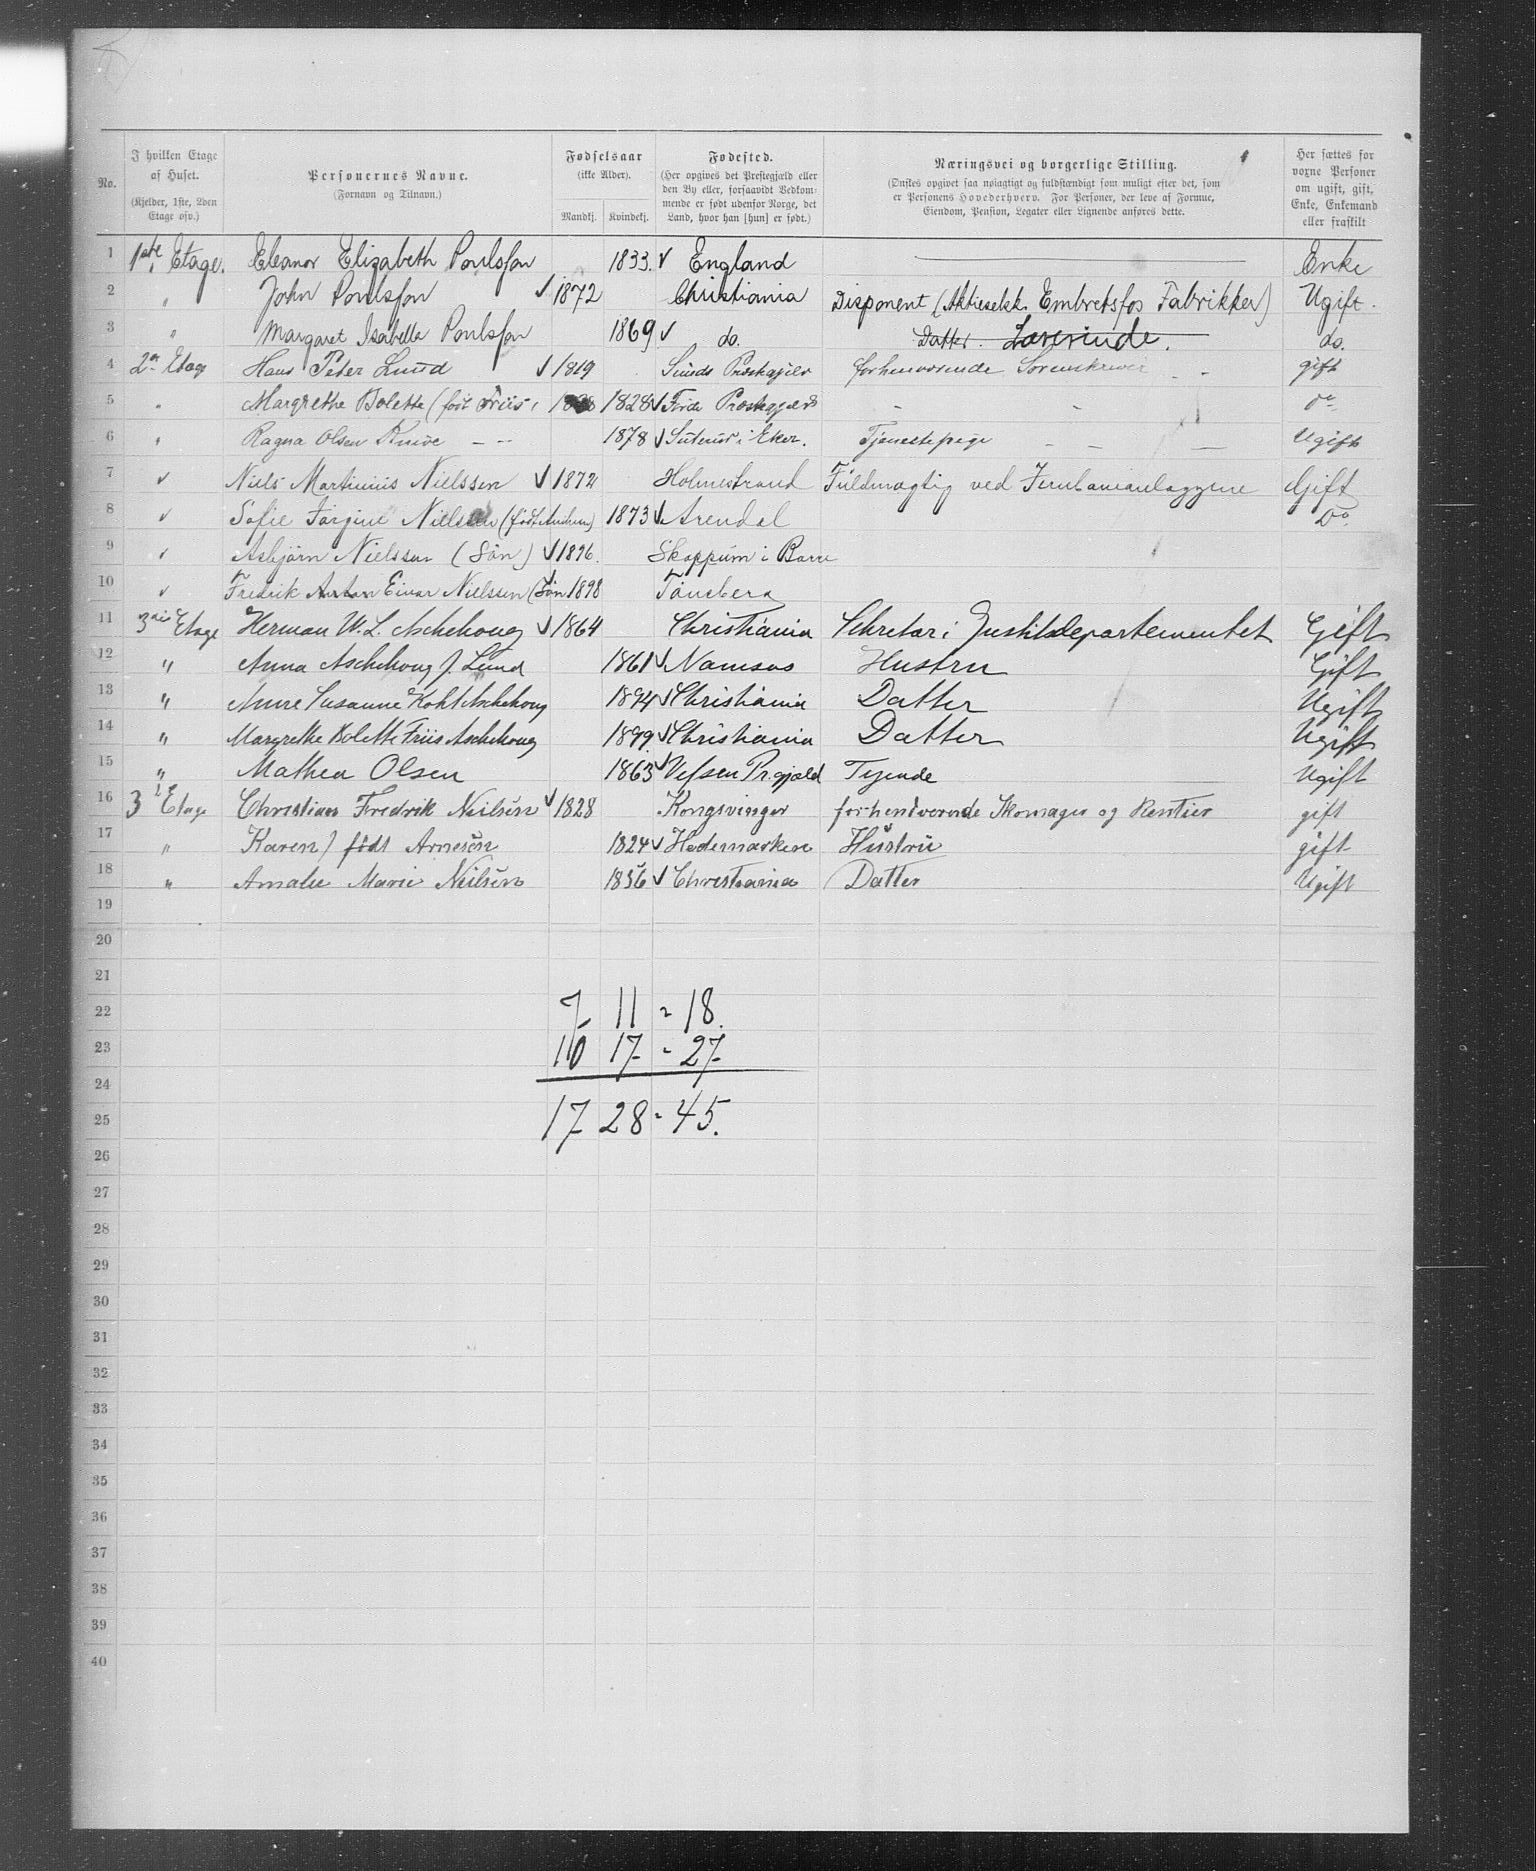 No.
I hvilken Etage af Huset.
(Kjelder, 1ste, 2den Etage osv.)
Personernes Navne.
(Fornavn og Tilnavn.)
Fødselsaar
(ikke Alder).
Mandkj. Kvindekj.
Fødested.
(Her opgives det Prestegjæld eller
den By eller, forsaavidt Vedkom-
mende er født udenfor Norge, det
Land, hvor han [hun] er født.)
Næringsvei og borgerlige Stilling.
(Ønskes opgivet saa nøiagtigt og fuldstændigt som muligt efter det, som
er Personens Hovederhverv. For Personer, der leve af Formue,
Eiendom, Pension, Legater eller Lignende anføres dette.
Her sættes for
voxne Personer
om ugift, gift,
Enke, Enkemand
eller fraskilt
1 1ste Etage. Eleanor Elizabeth Poulsson 1833. √ England Enke
2 " John Poulsson √ 1872 Christiania Disponent (Aktieselsk. Embretsfos Fabrikker) Ugift.
3 " Margaret Isabella Poulsson 1869 √ do. Datter. Lærerinde. do.
4 2en Etage Hans Peter Lund √ 1819 Præstegjeld forhenværende Sorenskriver - - gift
5 " Margrethe Bolette (født Friis) 1828 √ Førde Præstegjeld - - do
6 " Ragna Olsen - - 1878 √ i Eker. Tjenestepige - - - Ugift
7 " Niels Martinius Nielssen √ 1872 Holmestrand Fuldmægtig ved Jernbaneanlæggene Gift
8 " Sofie Jørgine Nielssen (født) 1873 √ Arendal Do.
9 " Asbjörn Nielssen (Sön) √ 1896. Skoppum i Borre
10 " Fredrik Anton Einar Nielssen (Sön 1898 Tönsberg
11 3die Etage Herman W. L. Aschehoug √ 1864 Christiania Sekretær i Justitsdepartementet Gift
12 " Anna Aschehoug f. Lund 1861 √ Namsos Hustru Gift
13 " Anne Susanne Kohl Aschehoug 1894 √ Christiania Datter Ugift
14 " Margrethe Bolette Friis Aschehoug 1899 √ Christiania Datter Ugift
15 " Mathea Olsen 1863 √ Vefsen Pr.gjæld Tyende Ugift
16 3 Etage Christian Fredrik Neilsen √ 1828 Kongsvinger forhenværende Skomager og Rentier gift
17 " Karen) født Arnesen 1824 √ Hedemarken Hustru gift
18 " Amalie Marie Neilsen 1856 √ Christiania Datter Ugift
19
20
21
22 7 11 = 18.
23 10 17 = 27
24
25 17 28 = 45.
26
27
28
29
30
31
32
33
34
35
36
37
38
39
40